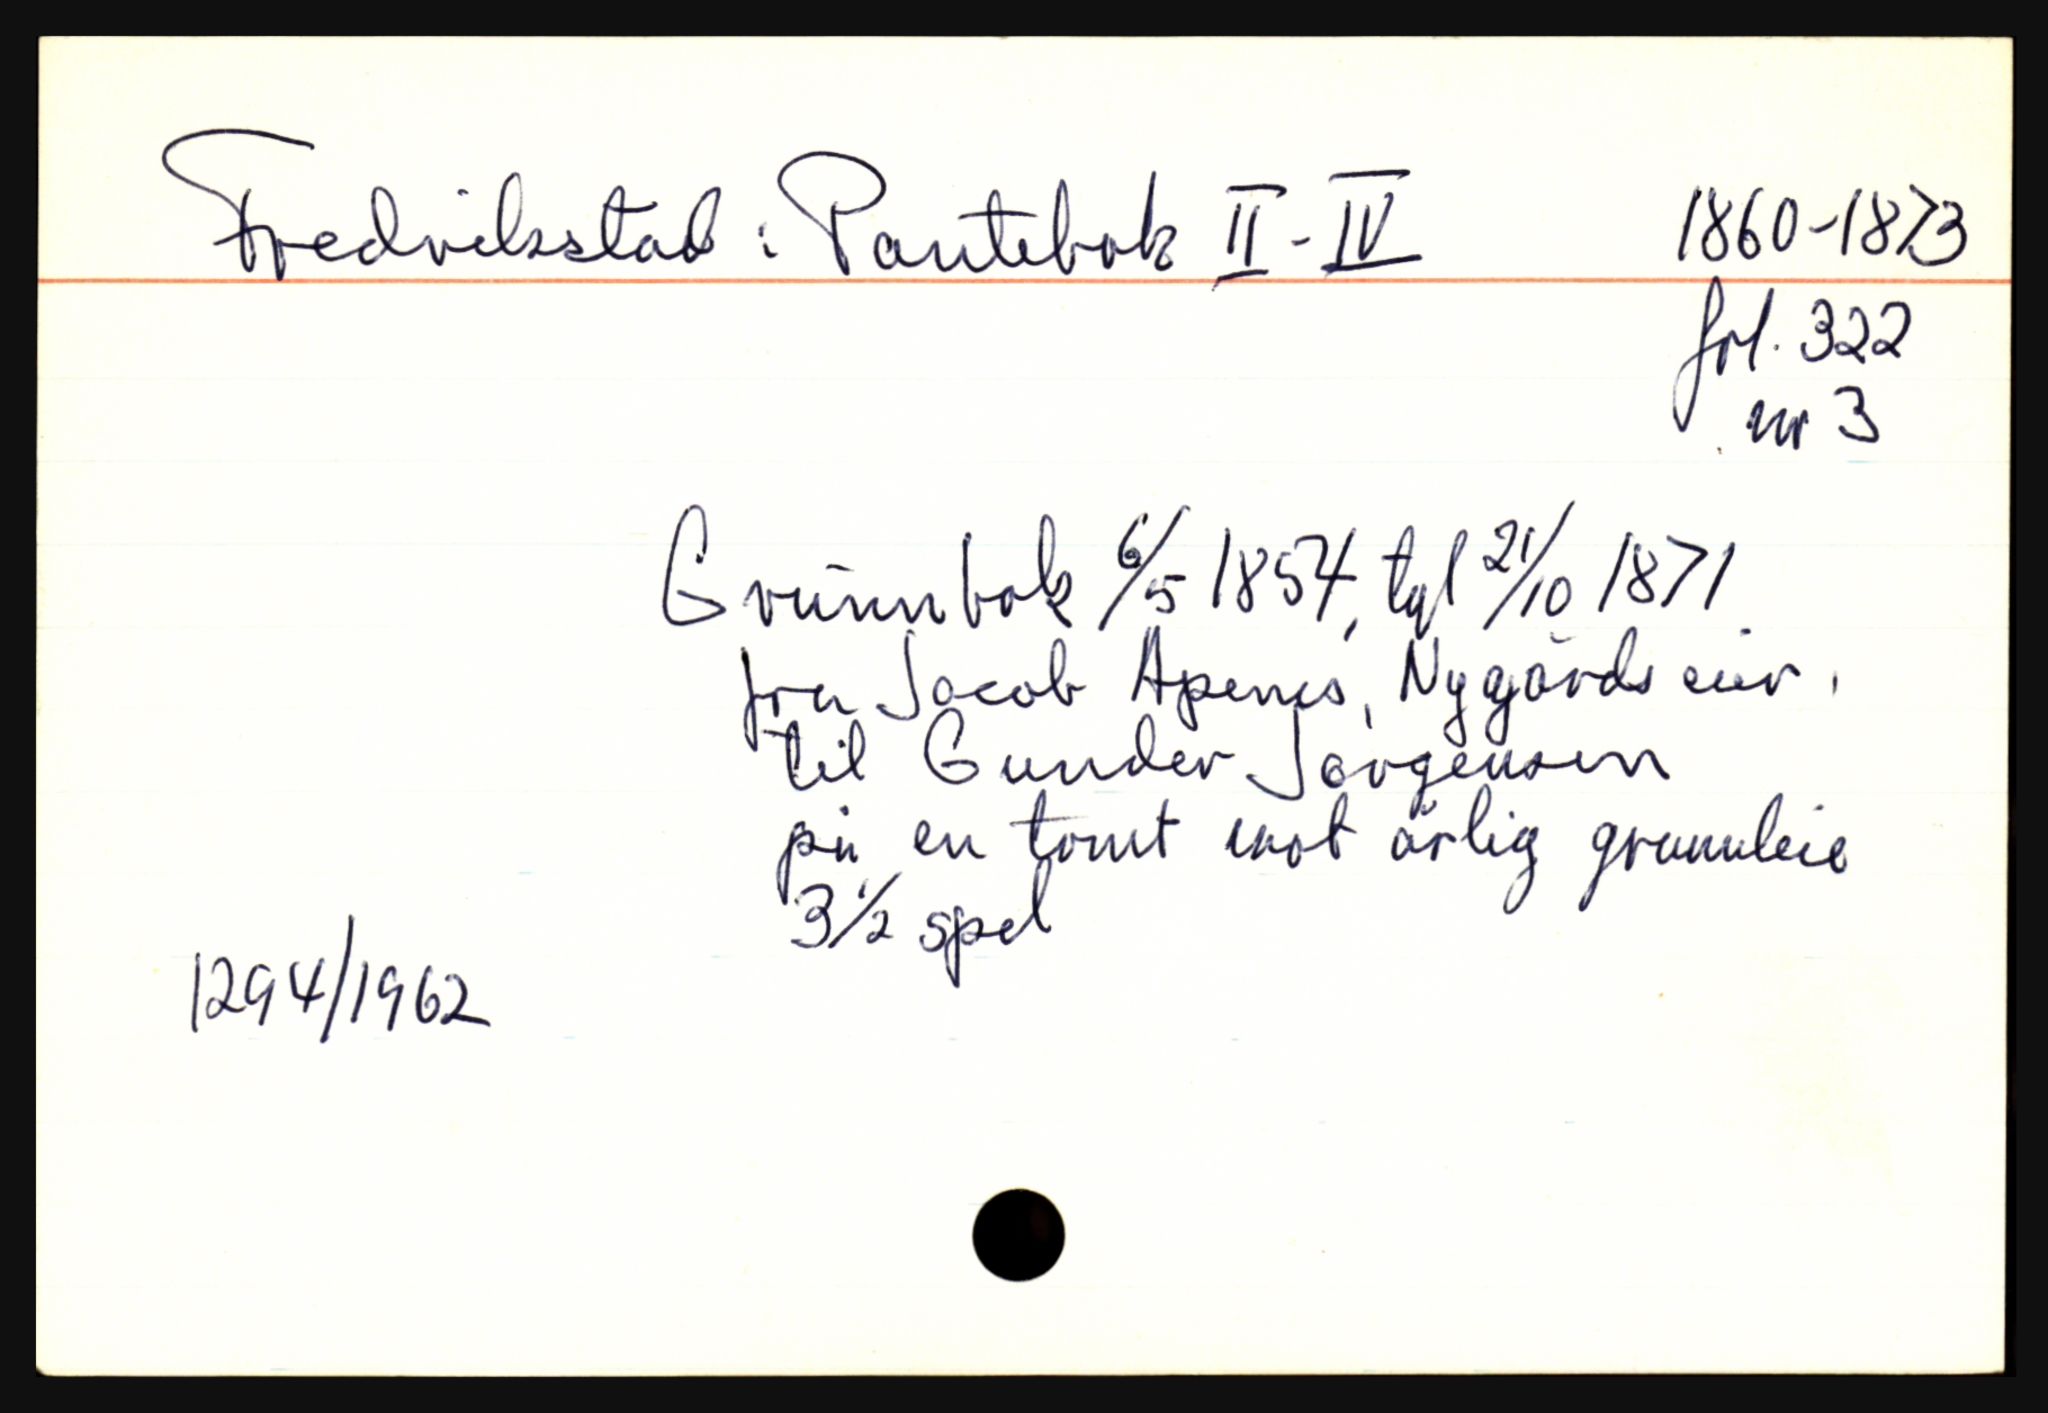 Fredriksstad: Pantebok II-IV 1860-1873
fol. 322
nr 3
Grunnbok 6/5 1854, tgl 21/10 1871
fra Jacob Apenes, Nygårds eier,
til Gunder Jørgensen
på en tomt mot årlig grunnleie
3 1/2 spd
1294/1962